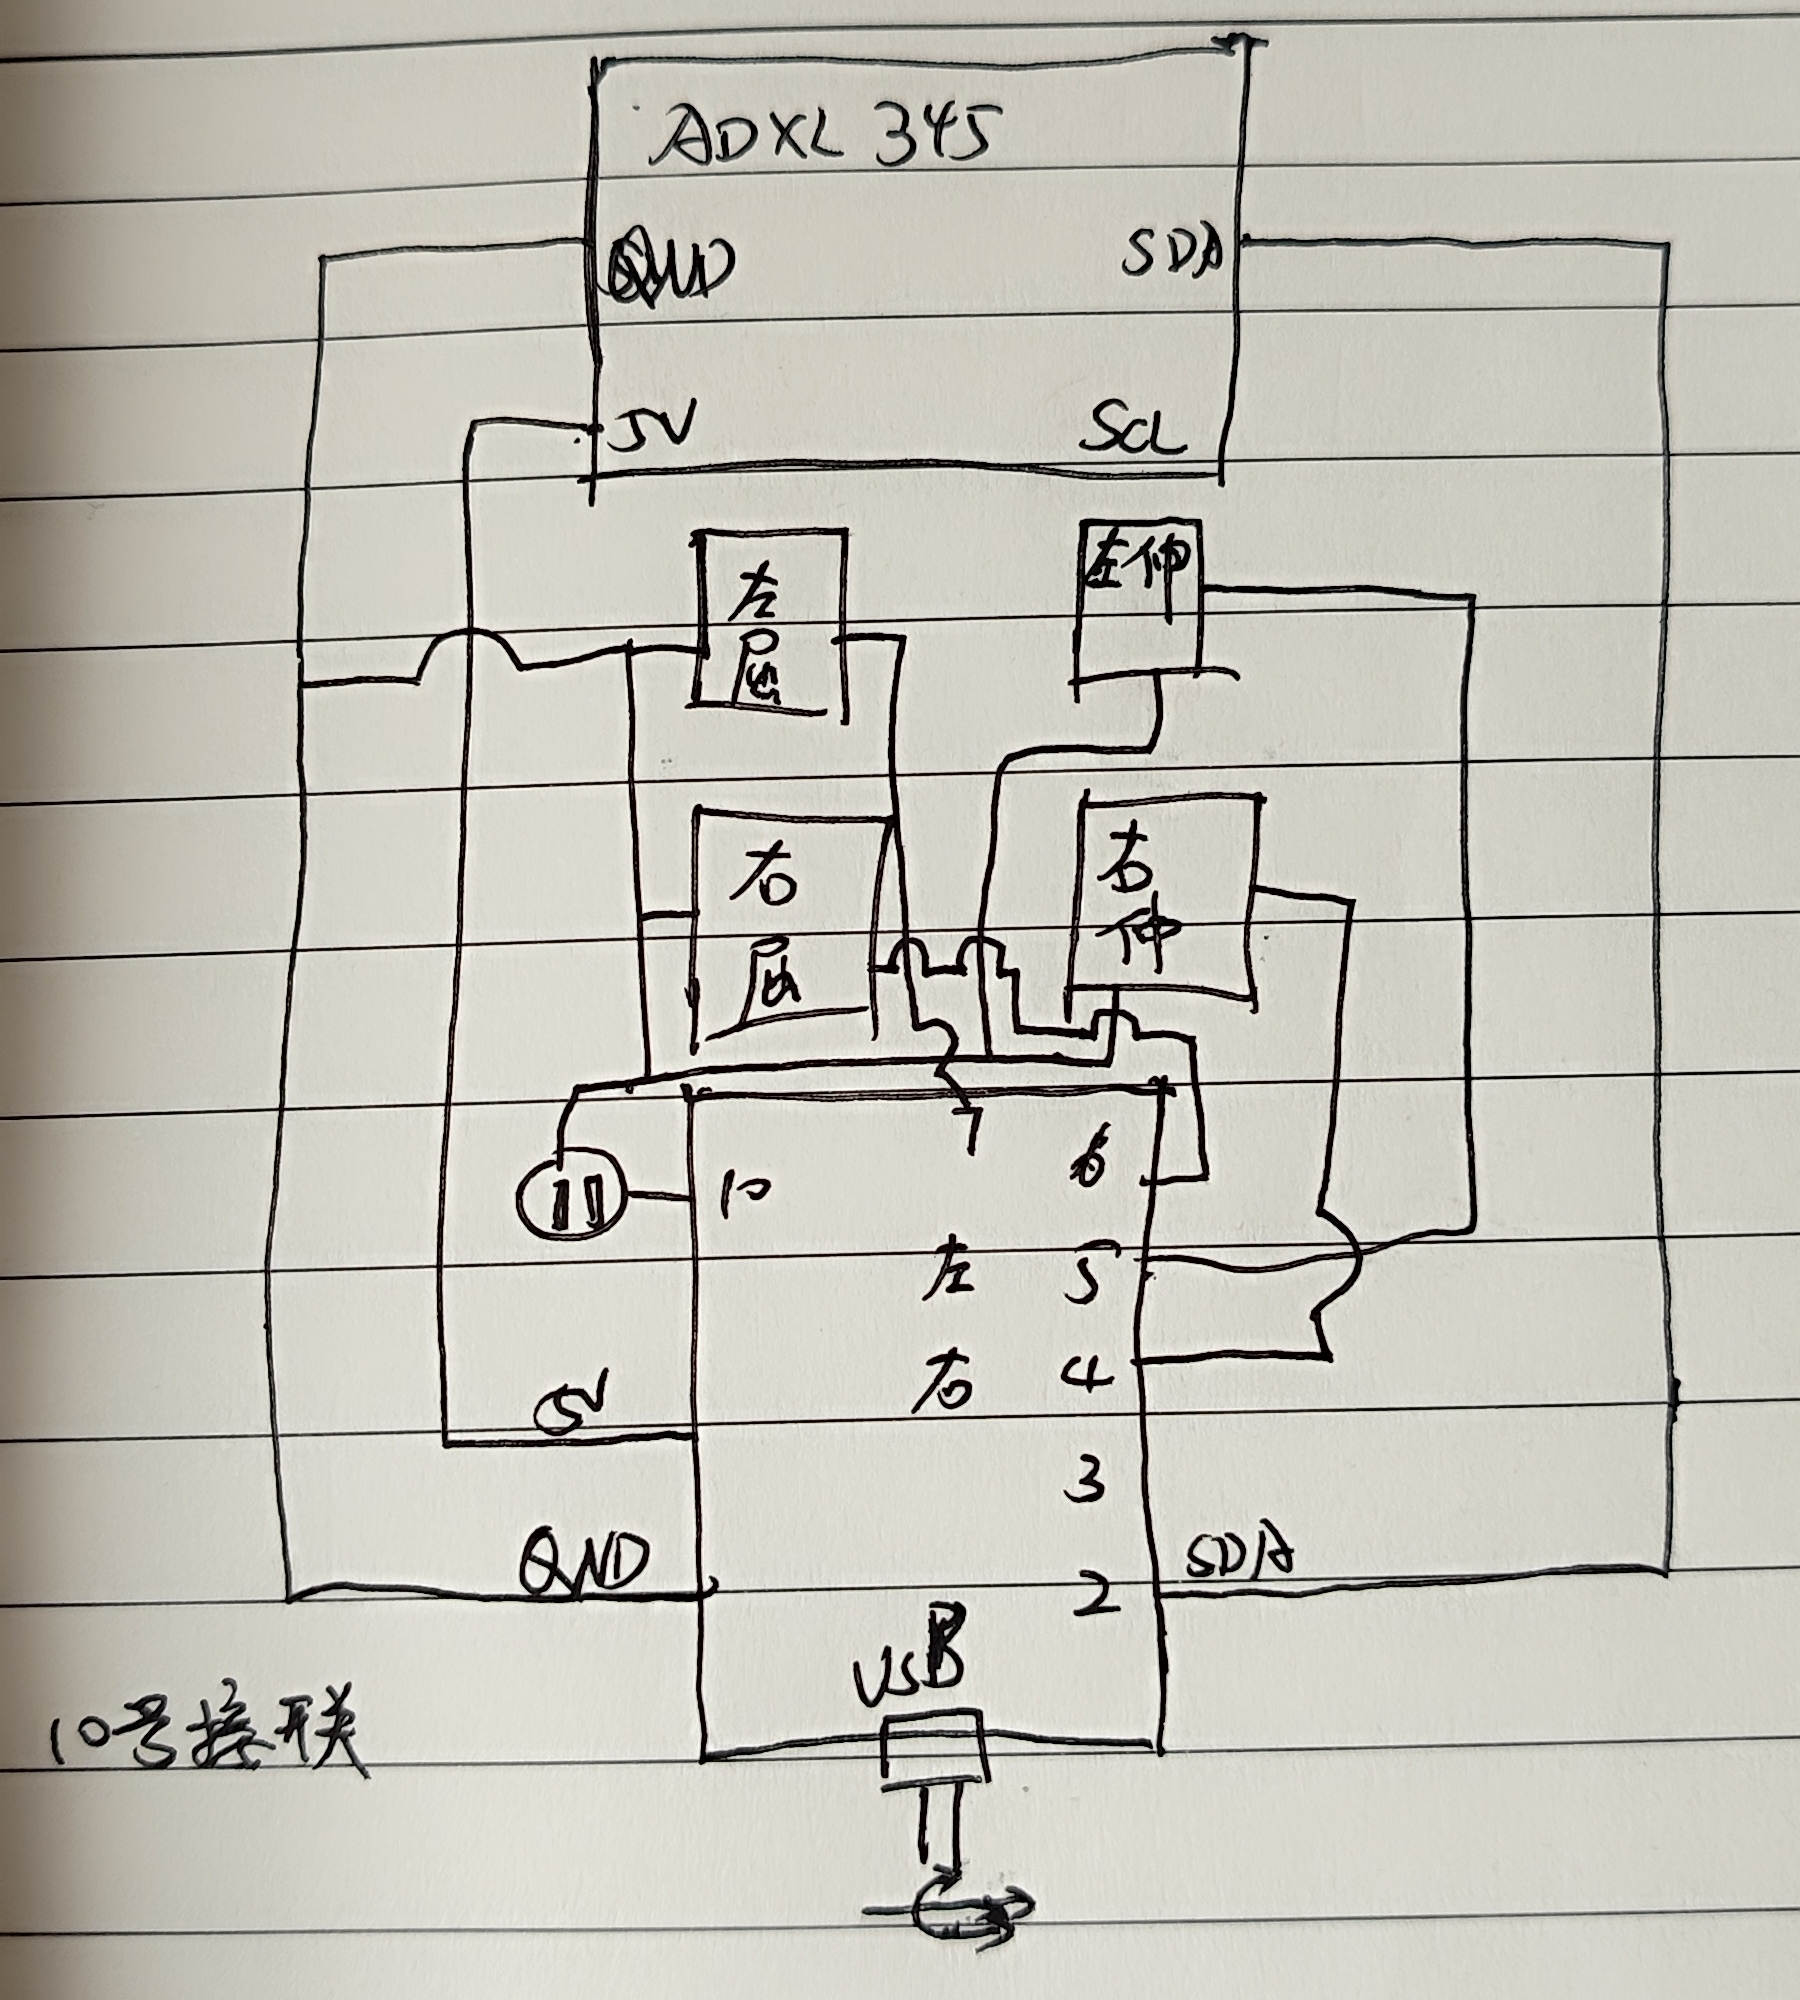 ADXL 345
GND
SDA
5V
SCL
左
屈
左伸
右
屈
右
伸
7
10
6
左 5
右 4
5V
3
GND
2
SDA
USB
10号接联